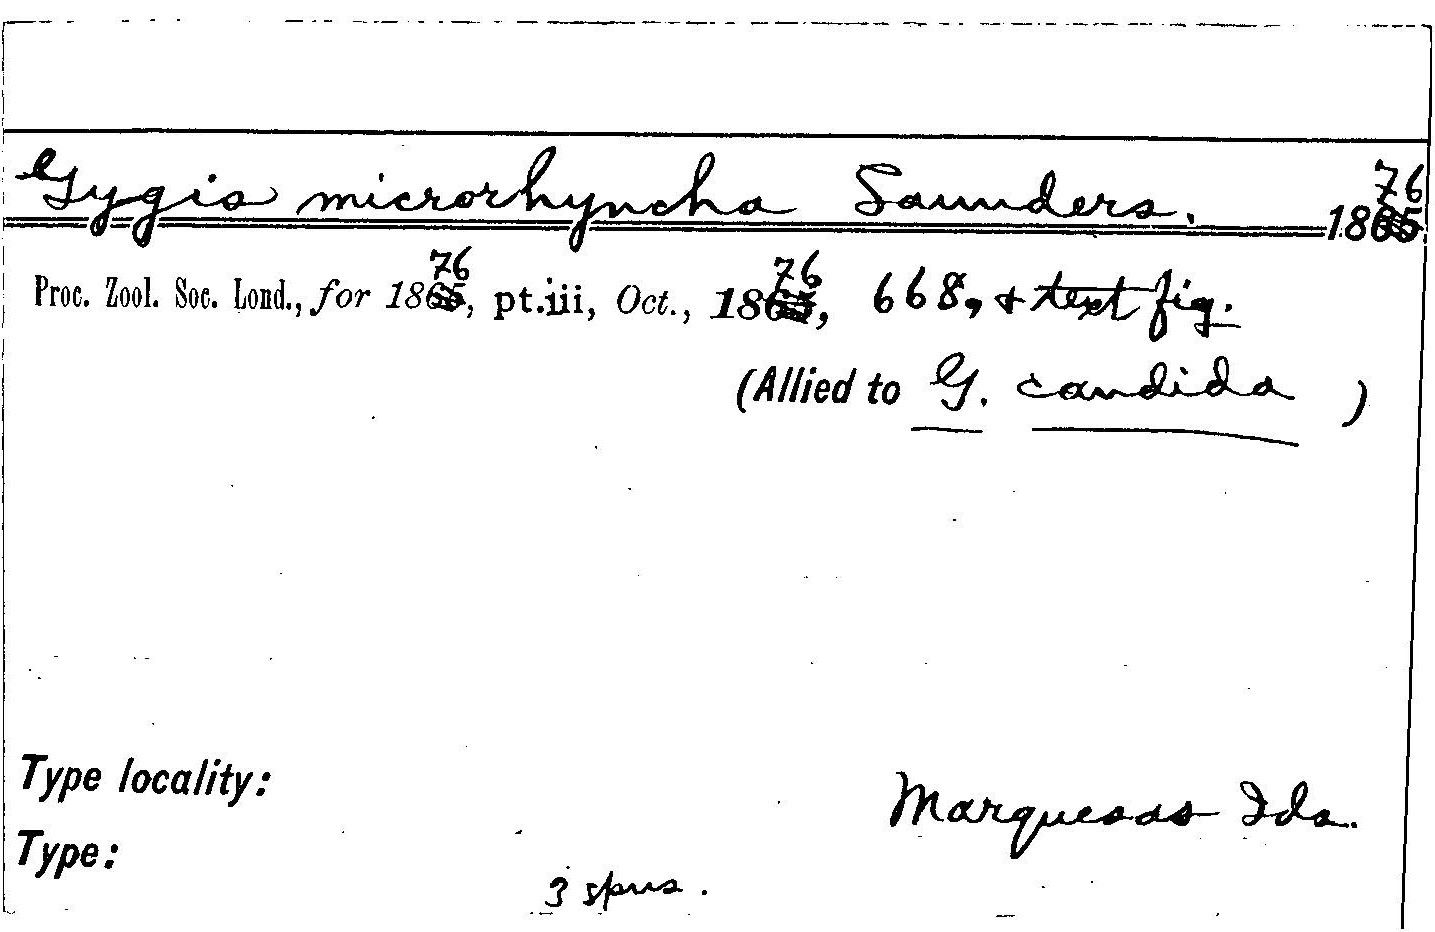 Gygis microrhyncha Saunders. 1876
Proc. Zool. Soc. Lond., for 1876, pt.iii, Oct., 1876, 668, & text fig.
(Allied to G. candida )
Type locality: Marquesas Ids.
Type: 3 spns.